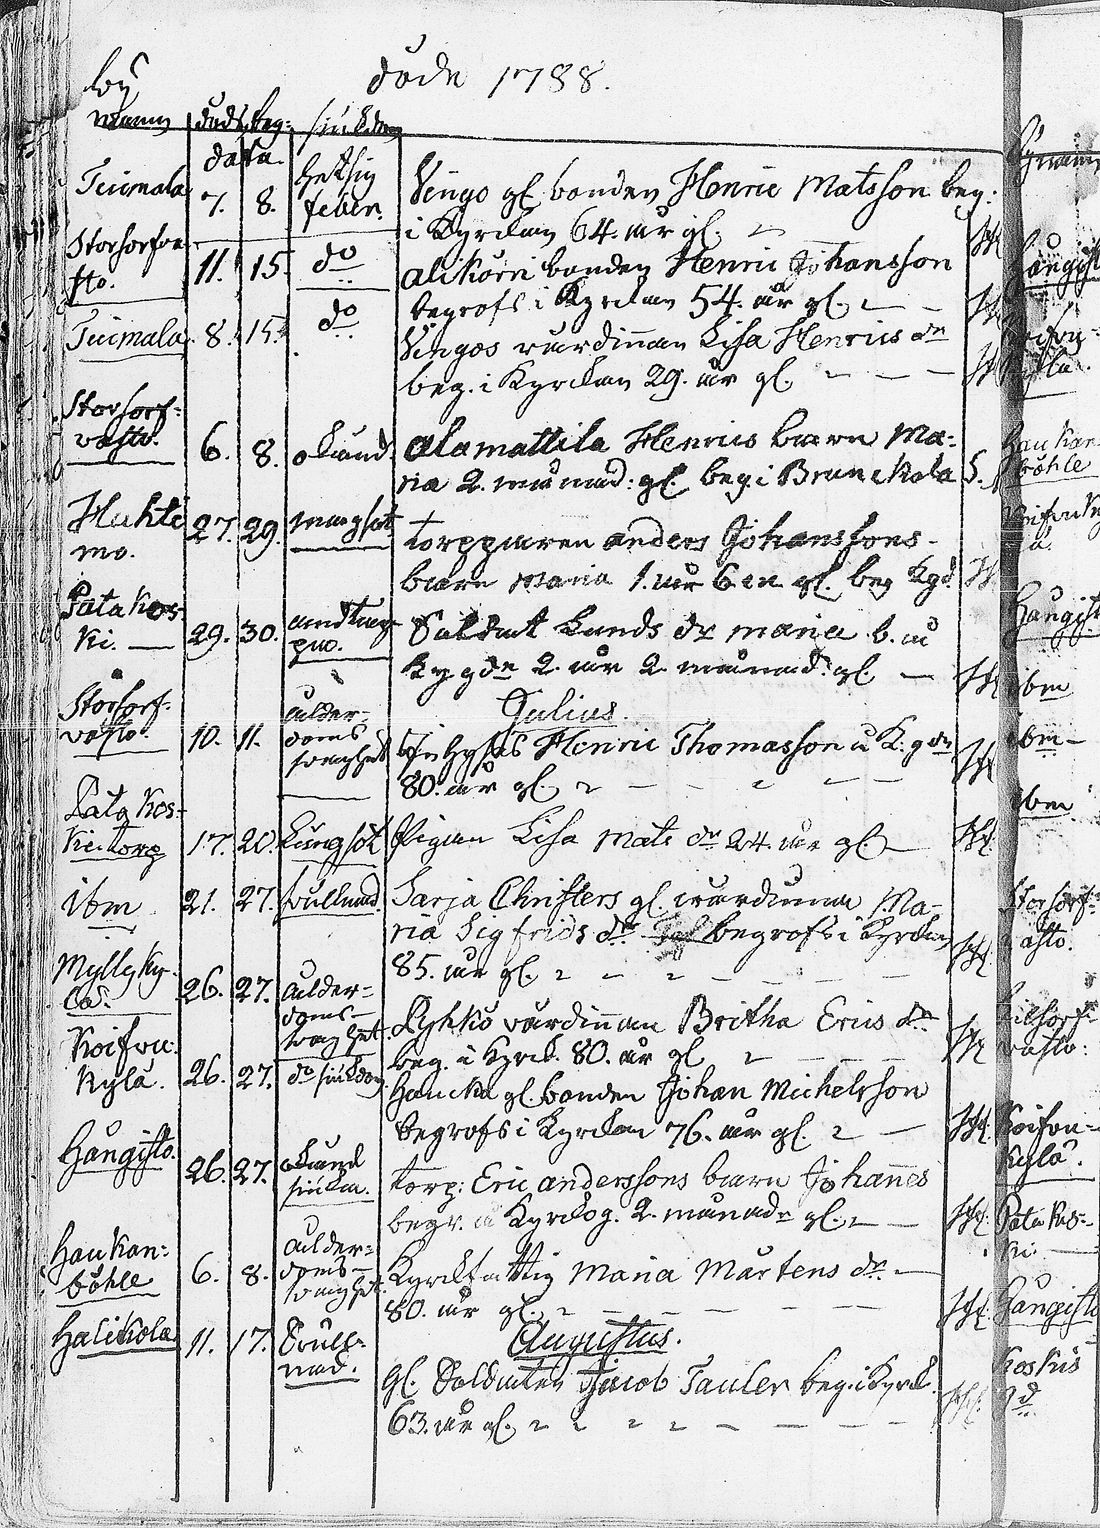 döde 1788.
by
namn döds beg: siukdom
data.
Teiimala 7. 8. hetsig feber.
Vingo gl. bonden Henric Matsson beg.
i Kyrckan 64. år gl.
Storsorfva sto. 11. 15. do
alikörri bonden Henric Johansson
begrofs i Kyrckan 54. år gl.
Teiimala 8. 15. do
Vingos värdinnan Lisa Henrics dr
beg. i Kyrckan 29. år gl.
Storsorf- vasto. 6. 8. okiänd
alamattila Henrics barn Ma-
ria 2. månad: gl. beg. i Brunckala
Huhti mo. 27. 29. magsot
torpparen anders Johanssons
barn Maria 1. år 6 gl. beg Kgd.
Patakos- ki. 29. 30. andtäp pa.
Soldat Lunds dr maria b. å
Kygdn 2. år 2. månad. gl.
Julius.
Storsorf- vasto. 10. 11. ålder- doms svaghet
Inhyses Henric Thomasson å K: gdn
80. år gl.
Patakos- ki torp 17. 20. Lungsot
Pigan Lisa Mats dr 24 år gl.
ibm 21. 27. svullnad.
Sarja Christers gl. värdinna Ma-
ria Sigfrids dr begrofs i Kyrckan
85. år gl.
Myllyky- lä. 26. 27. ålder- doms- svaghet.
Pyhkö värdinnan Britha Erics dr
beg. i Kyrck. 80. år gl
Koifvu- kylä. 26. 27. do siukdom
Haucka gl. bonden Johan Michelsson
begrofs i Kyrckan 76. år gl.
Hångisto. 26. 27. okiänd siukdom.
torp: Eric anderssons barn Johannes
begr. å Kyrckog. 2. månadr gl.
Haukan- böhle 6. 8. ålder- doms- svaghet.
Kyrckfattig Maria Mårtens dr.
80. år gl.
Augustus.
Halikola 11. 17. Svull- nad.
Gl. Soldaten Jacob Tauler beg. i Kyrck.
63. år gl.
Hångisto
Haukan- böhle
Hångisto
ibm
ibm
ibm
Storsorf- vasto.
Koifvu- kylä.
Patakos- ki
Hångisto
Koskis